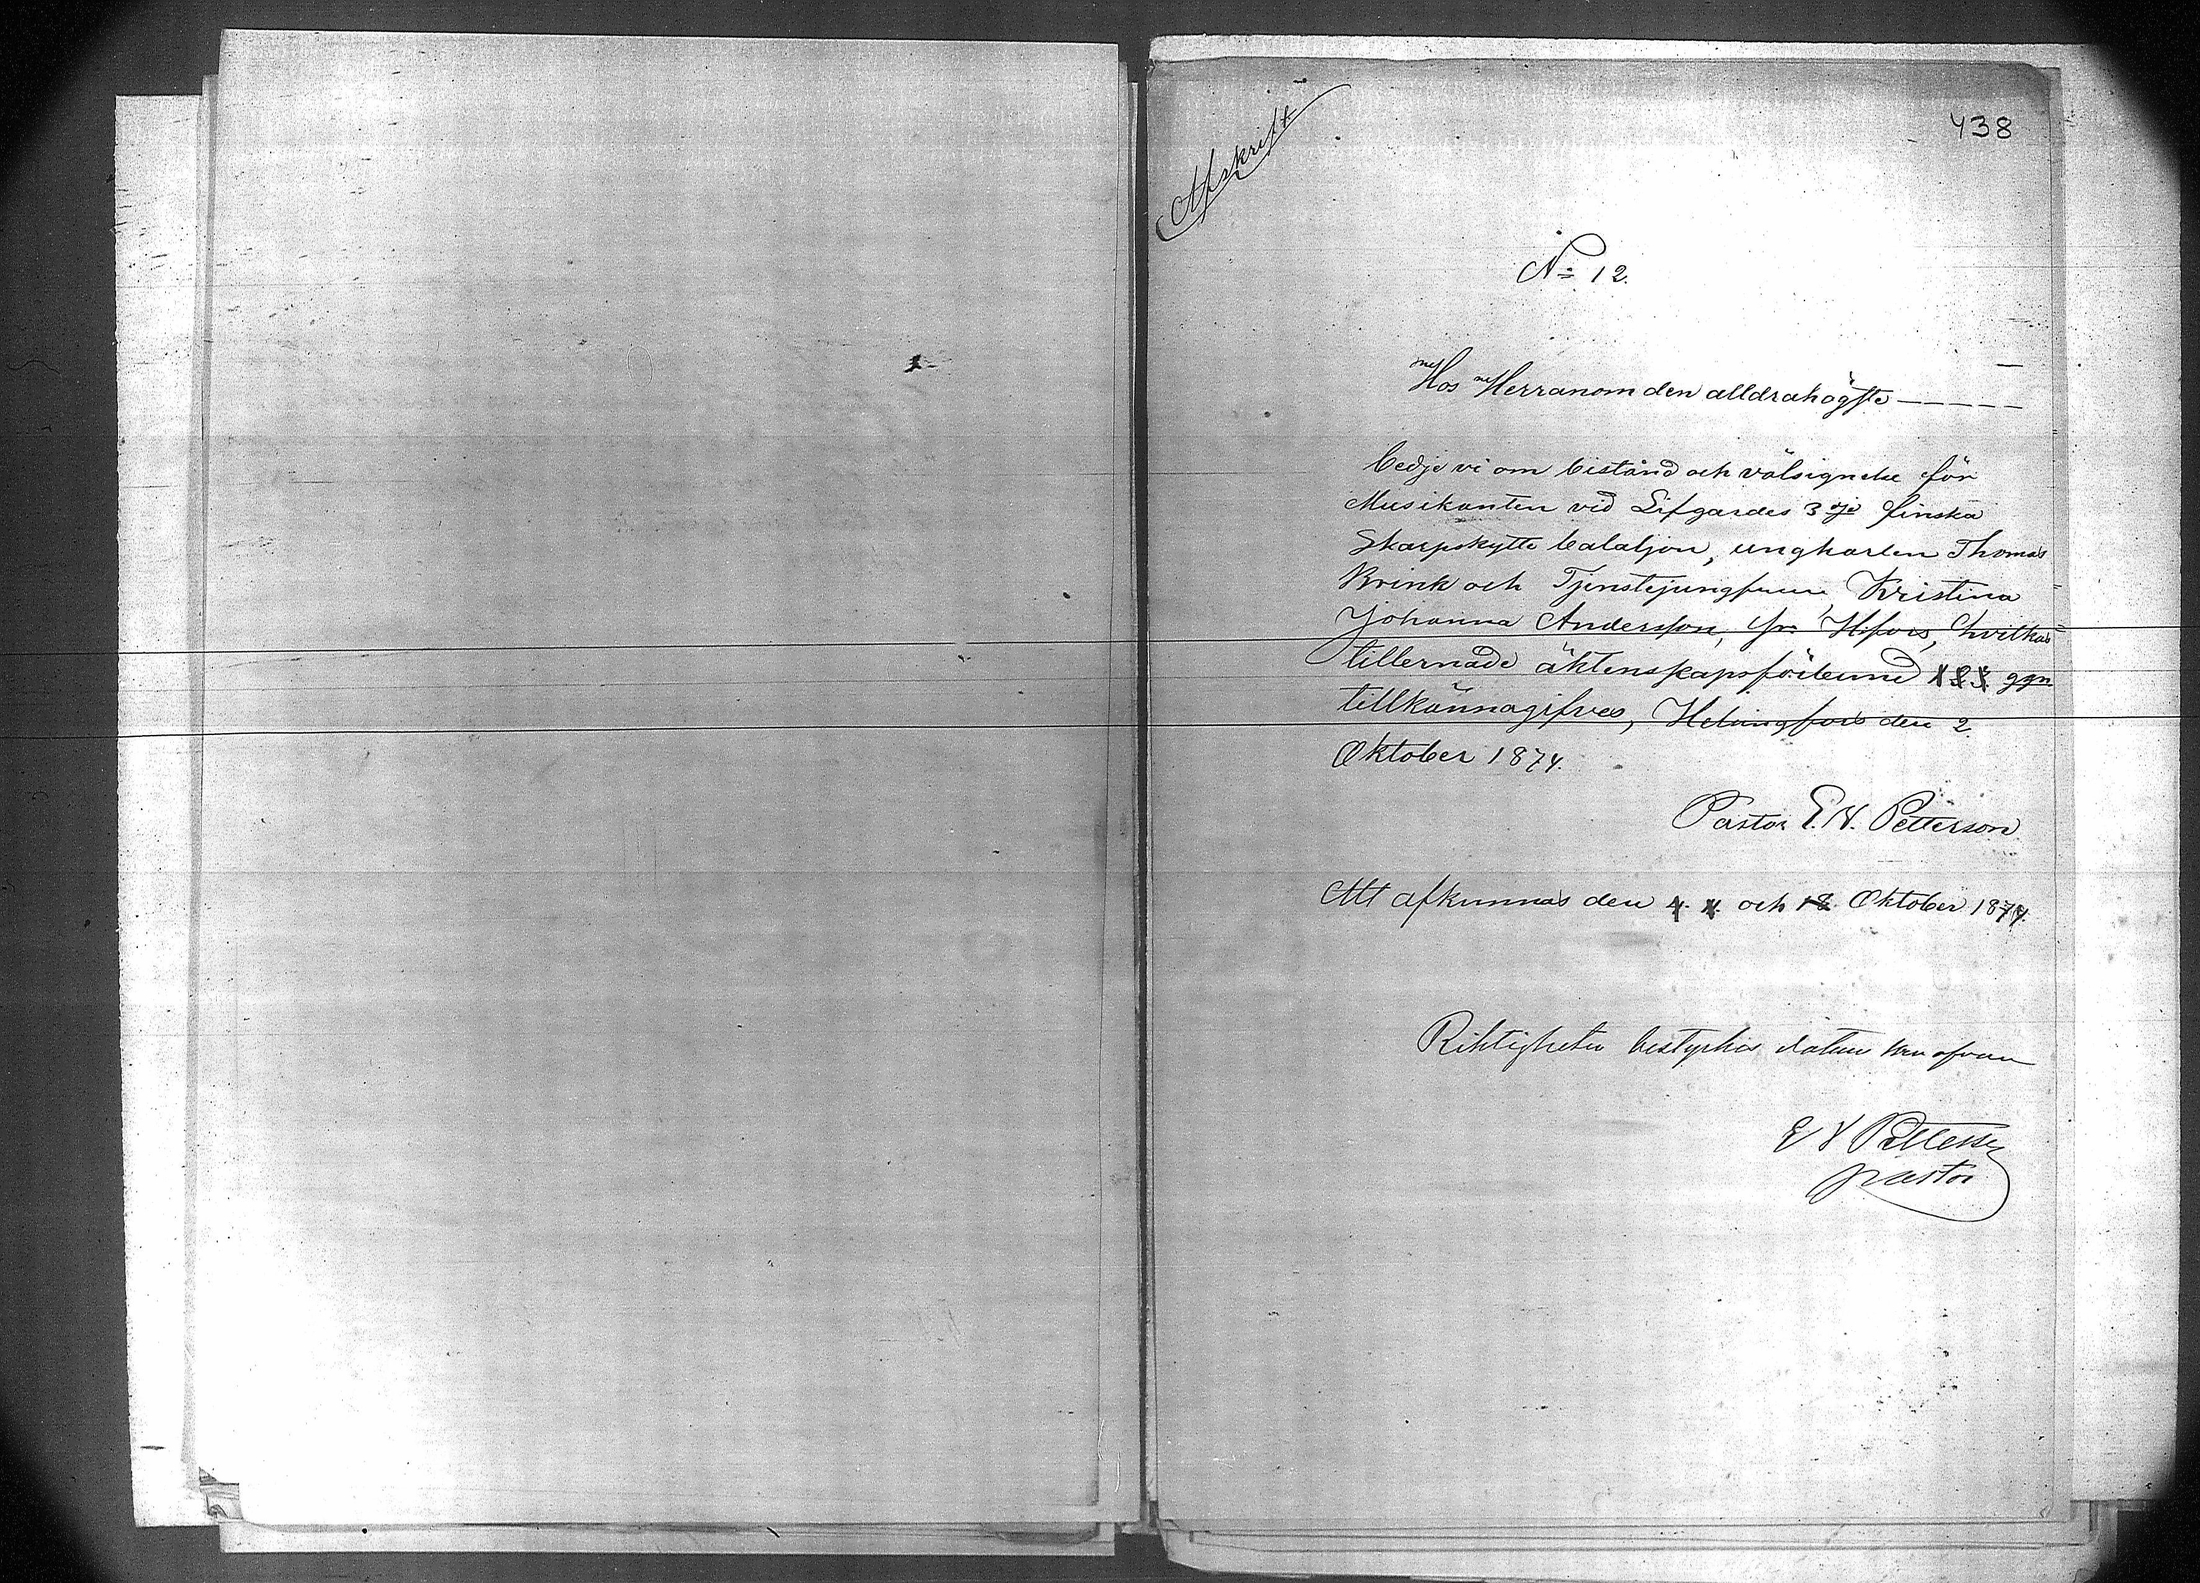 438
Afskrift
No 12.
Hos Herranom den alldrahögste
bedje vi om bistånd och välsignelse för
Musikanten vid Lifgardes 3dje finska
Skarpskytte bataljon, ungkarlen Thomas
Brink och Tjenstejungfrun Kristina
Johanna Andersson, fr. Hfors, hvilkas
tillernade äktenskapsförbund ggn
tillkännagifves, Helsingfors den 2
Oktober 1874.
Pastor E. N. Petterson
Att afkunnas den 4. och 18 Oktober 1874.
Riktigheten bestyrkes datum som ofvan
E N Petterson
pastor